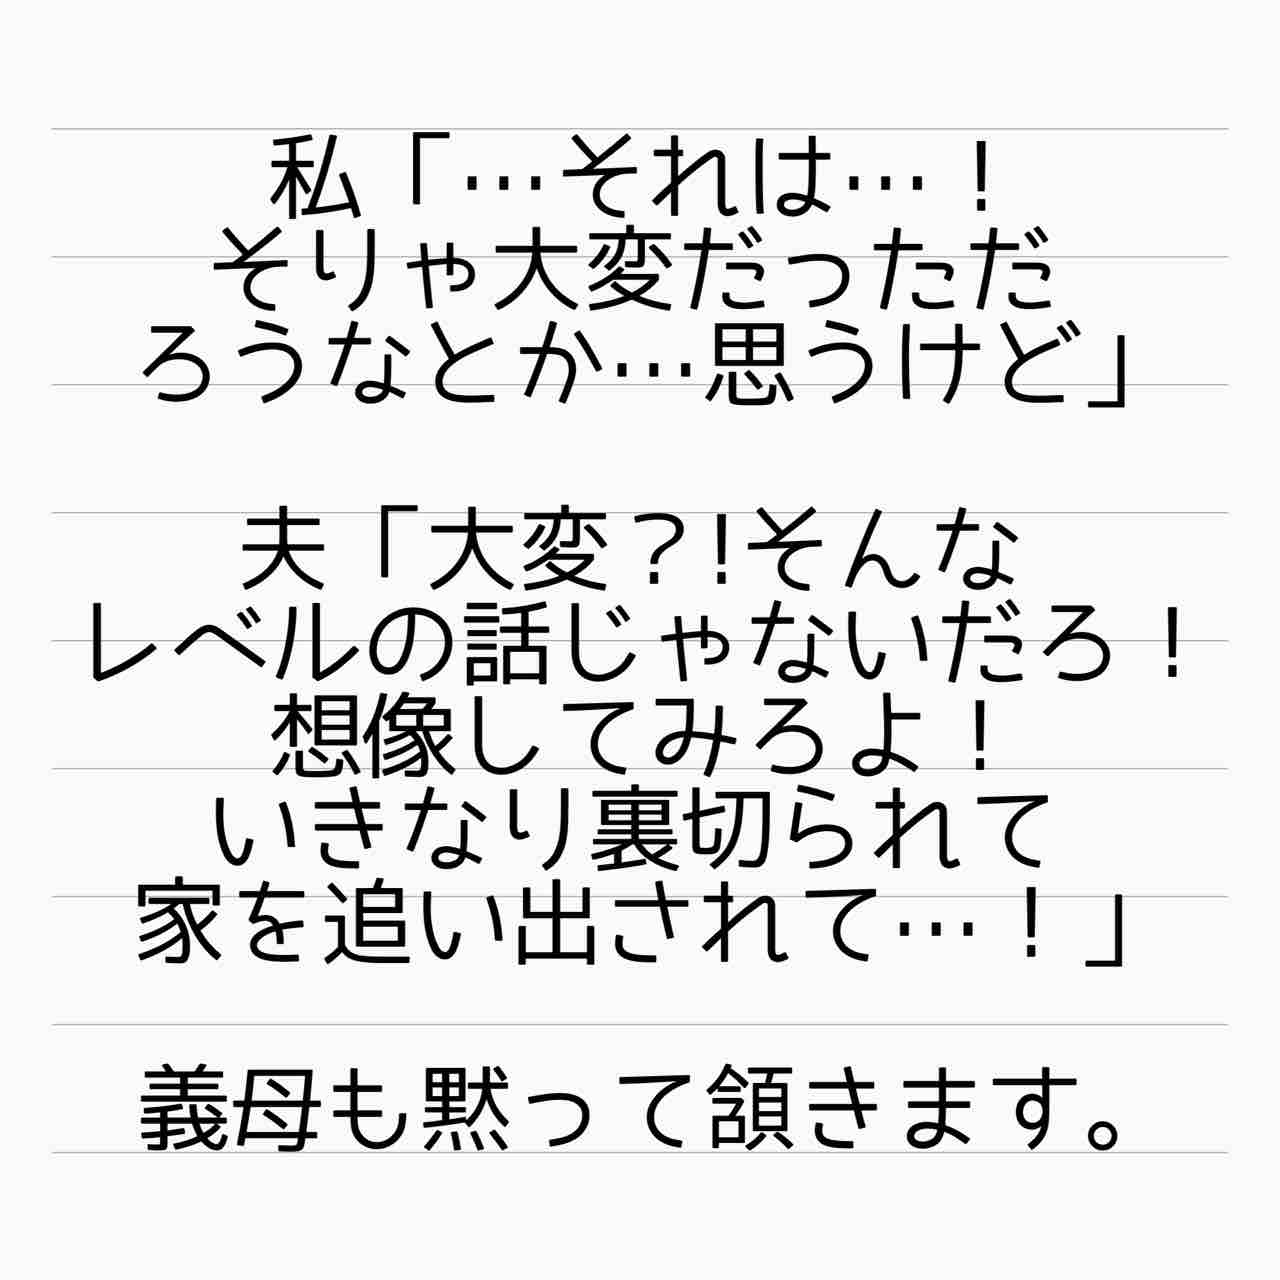 私「…それは…！
そりゃ大変だっただ
ろうなとか…思うけど」
夫「大変？!そんな
レベルの話じゃないだろ！
想像してみろよ！
いきなり裏切られて
家を追い出されて…！」
義母も黙って頷きます。